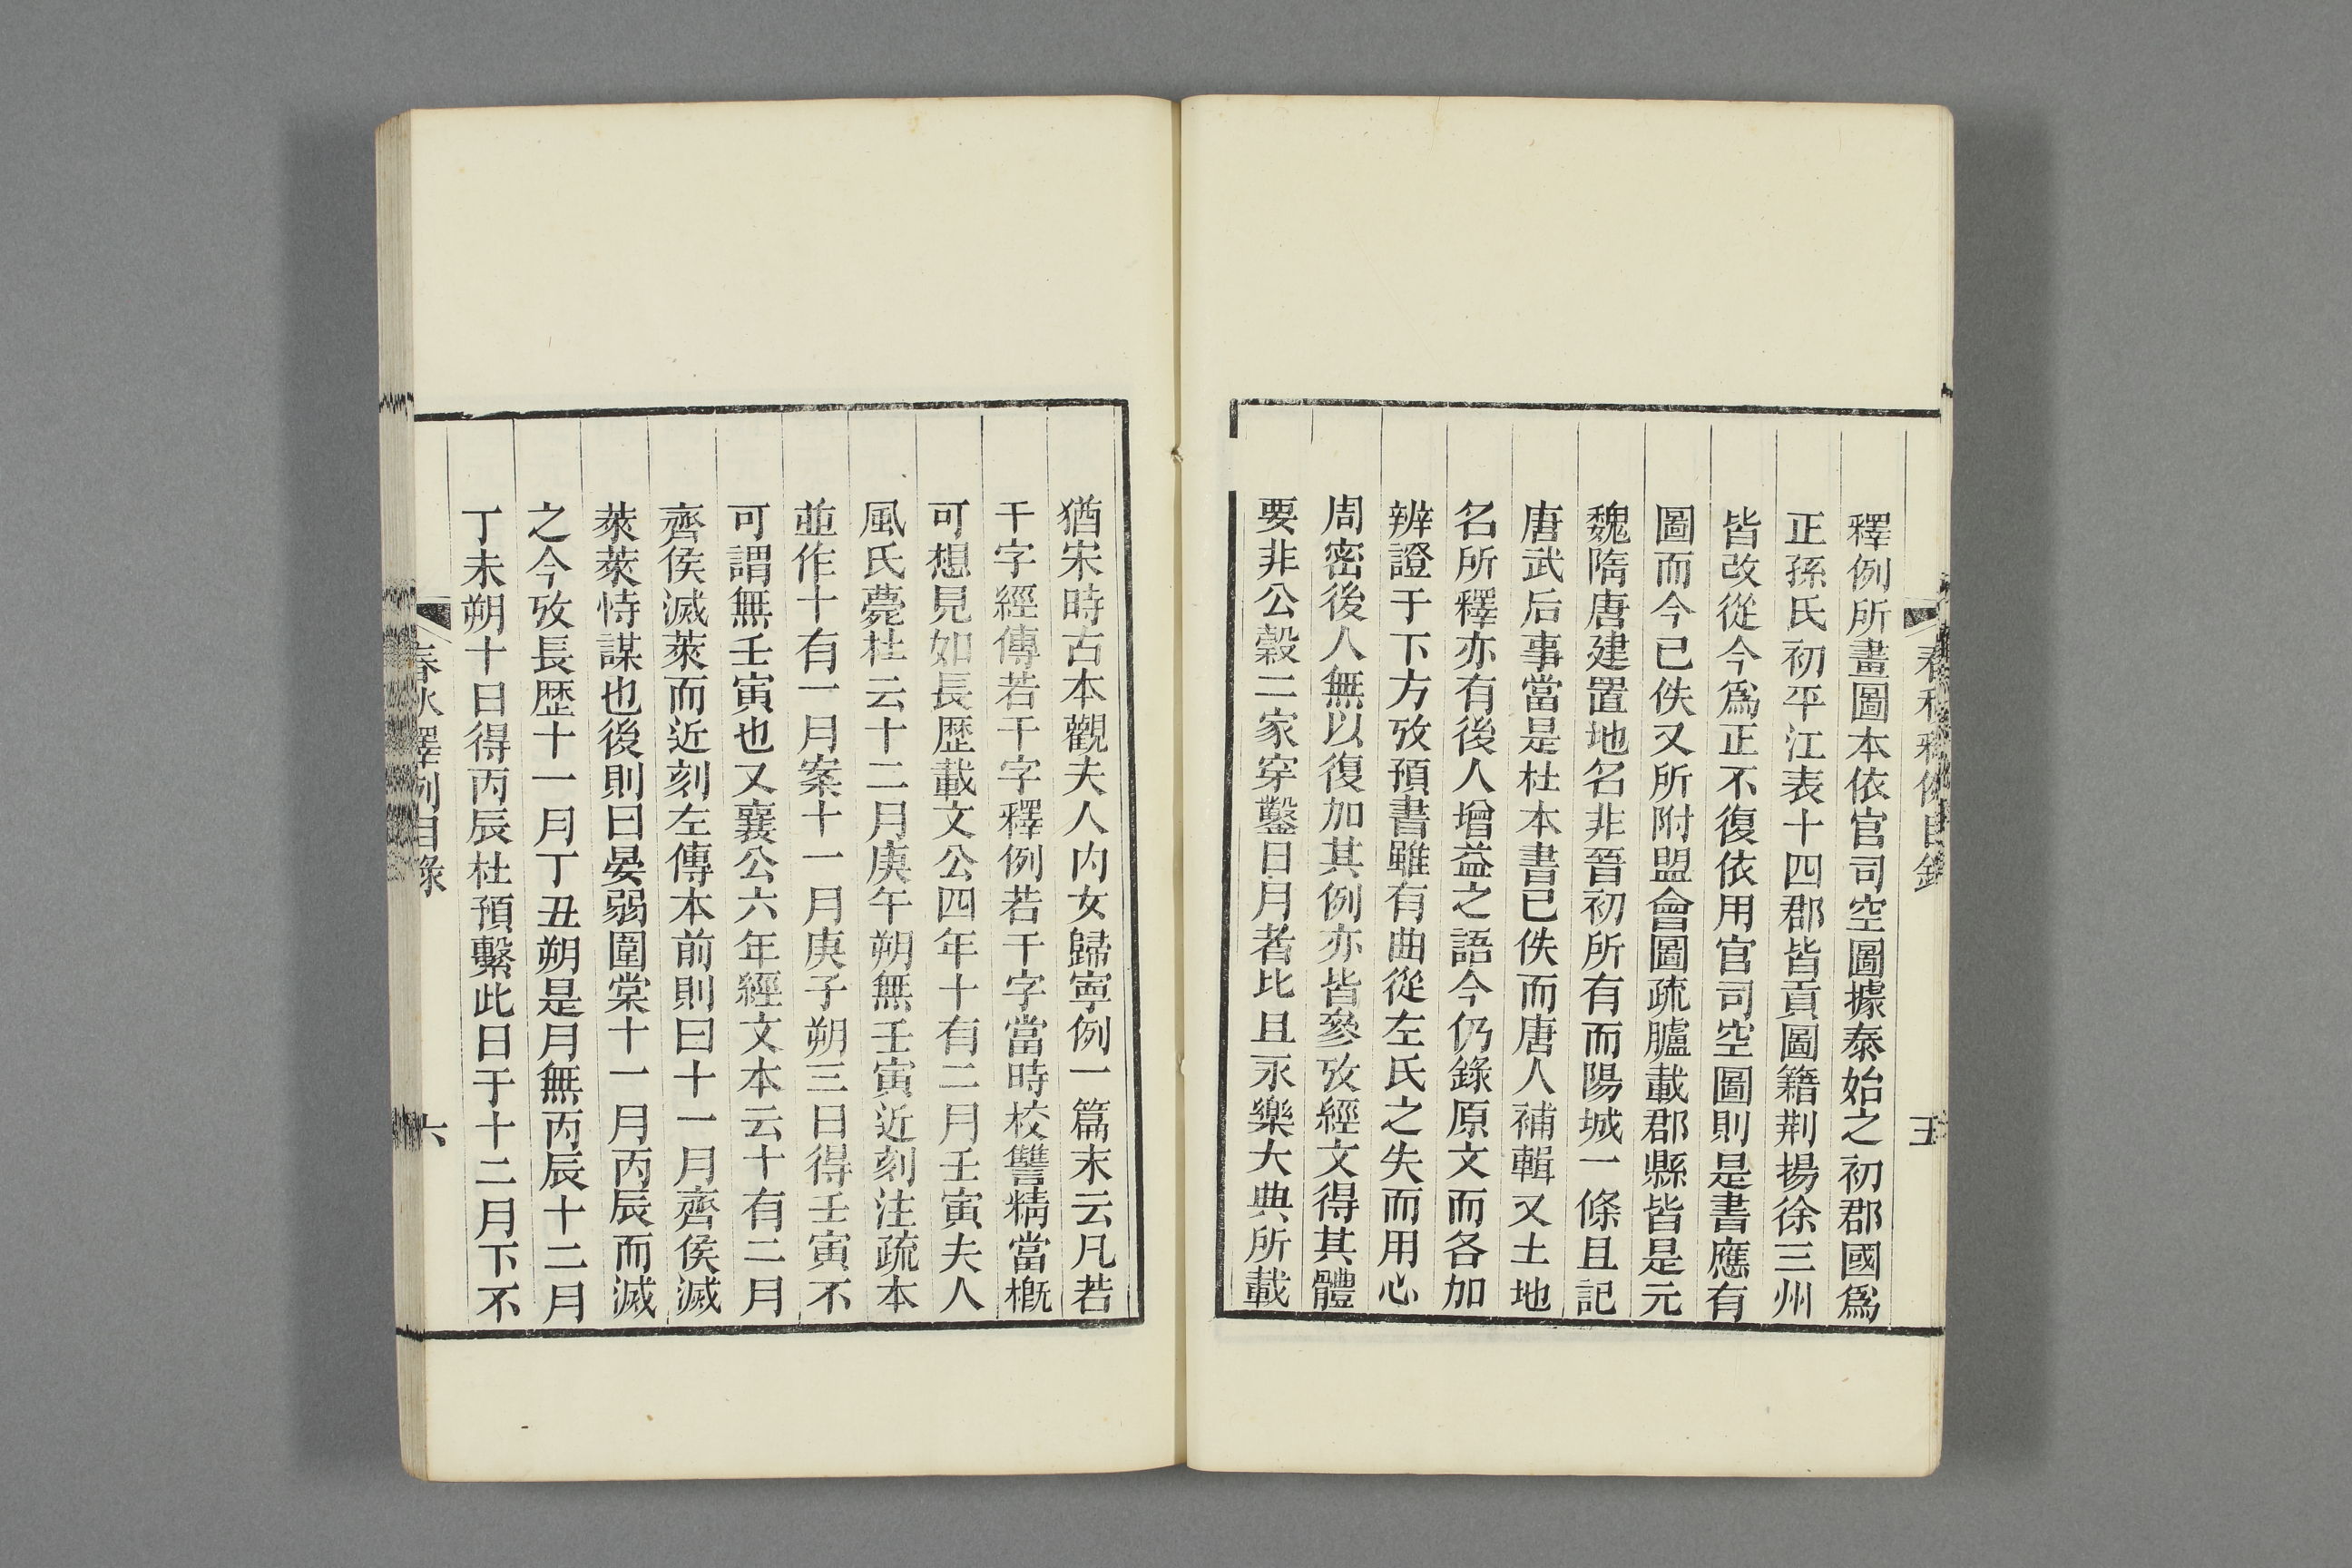 春秋釋例目錄
五
釋例所畫圖本依官司空圖據泰始之初郡國爲
正孫氏初平江表十四郡皆貢圖籍荆揚徐三州
皆改從今爲正不復依用官司空圖則是書應有
圖而今已佚又所附盟會圖疏臚載郡縣皆是元
魏隋唐建置地名非晉初所有而陽城一條且記
唐武后事當是杜本書已佚而唐人補輯又土地
名所釋亦有後人增益之語今仍錄原文而各加
辨證于下方攷預書雖有曲從左氏之失而用心
周密後人無以復加其例亦皆參攷經文得其體
要非公穀二家穿鑿日月者比且永樂大典所載
猶宋時古本觀夫人內女歸寧例一篇末云凡若
干字經傳若干字釋例若干字當時校讐精當槪
可想見如長歷載文公四年十有二月壬寅夫人
風氏薨杜云十二月庚午朔無壬寅近刻注疏本
並作十有一月案十一月庚子朔三日得壬寅不
可謂無壬寅也又襄公六年經文本云十有二月
齊侯滅萊而近刻左傳本前則曰十一月齊侯滅
萊萊恃謀也後則曰晏弱圍棠十一月丙辰而滅
之今攷長歷十一月丁丑朔是月無丙辰十二月
丁未朔十日得丙辰杜預繫此日于十二月下不
春秋釋例目錄
六